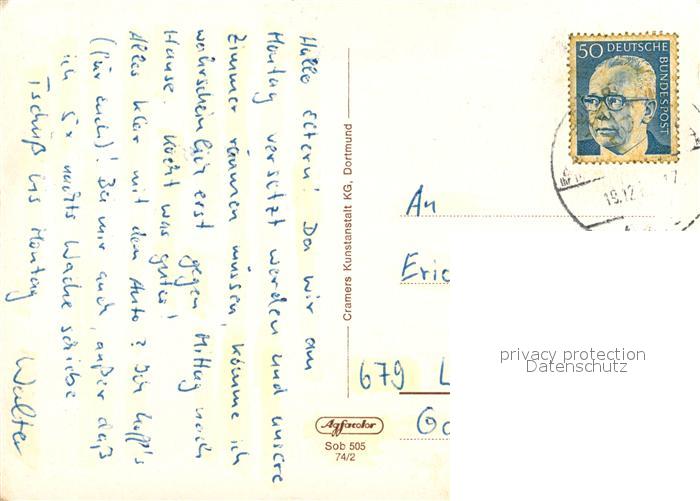 Hallo Eltern! Da wir am
Montag versetzt werden und unsere
Zimmer räumen müssen, komme ich
wahrscheinlich erst gegen Mittag nach
Hause. Kocht was gutes!
Alles klar mit dem Auto? Ich hoff's
(für euch)! Bei mir auch, außer daß
ich 5x nachts Wache schiebe
Tschüß bis Montag
Walter
Cramers Kunstanstalt KG, Dortmund
50 DEUTSCHE
BUNDESPOST
19.12.
17
An
Eric
679 L
privacy protection
Datenschutz
Agfacolor
Sob 505
74/2